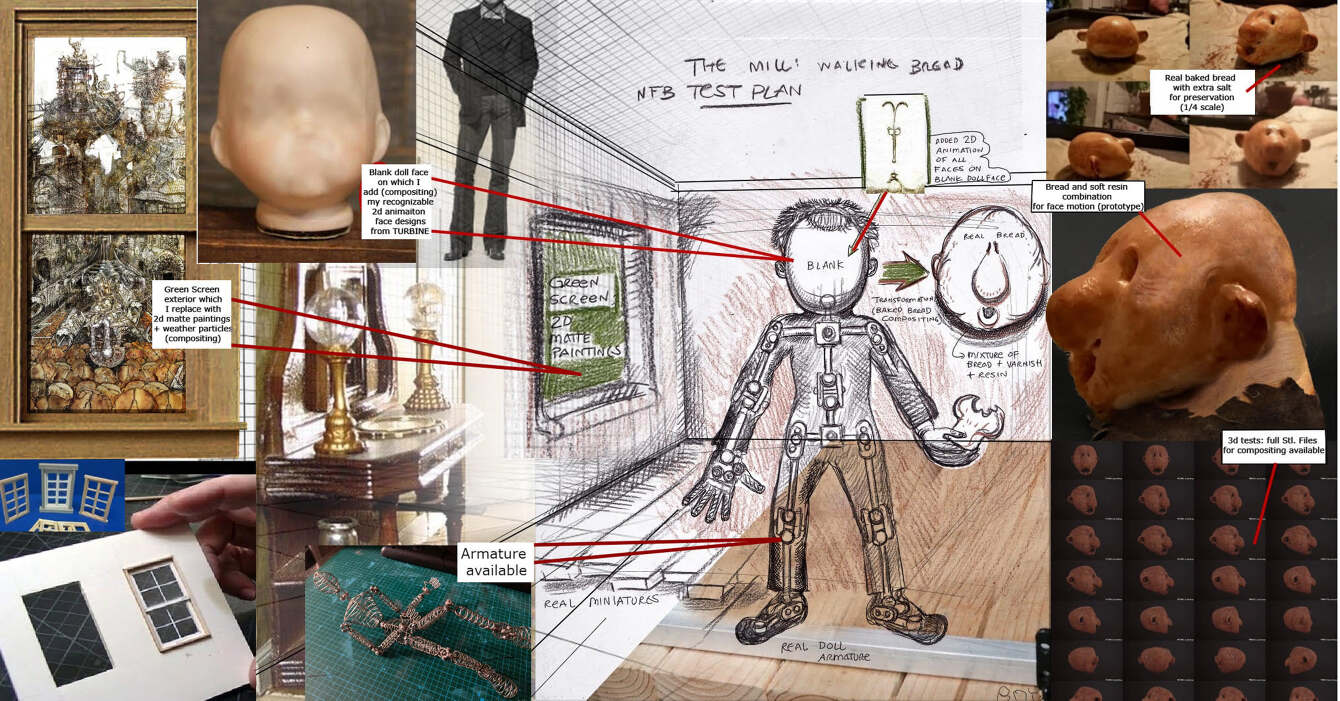 THE MILL: WALKING BREAD
NFB TEST PLAN
ADDED 2D
ANIMATION
OF ALL
FACES ON
BLANK DOLLFACE
Real baked bread
with extra salt
for preservation
(1/4 scale)
Blank doll face
on which I
add (compositing)
my recognizable
2d animaiton
face designs
from TURBINE
Bread and soft resin
combination
for face motion (prototype)
REAL BREAD
BLANK
GREEN
SCREEN
2D
MATTE
PAINTINGS
Green Screen
exterior which
I replace with
2d matte paintings
+ weather particles
(compositing)
(BAKED BREAD
COMPOSITING)
MIXTURE OF
BREAD + VARNISH
+ RESIN
3d tests: full Stl. Files
for compositing available
Armature
available
REAL MINIATURES
REAL DOLL
ARMATURE